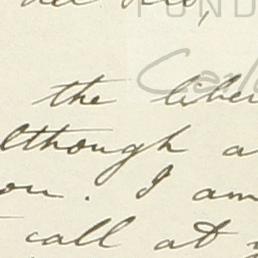 FUND
the liber
although a
you. I am
call at